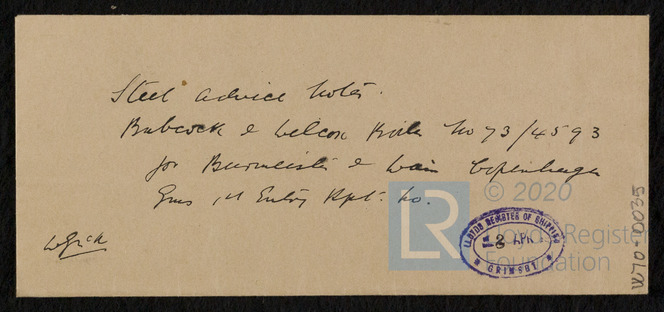 Steel advice notes.
Babcock & Wilcox Boiler No 73/4593
for Burmeister & Wain Copenhagen
Gms 1st Entry Rpt. No.
LLOYDS REGISTER OF SHIPPING
2 APR
GRIMSBY
© 2020
LR
Lloyd's Register
Foundation
W710-0035